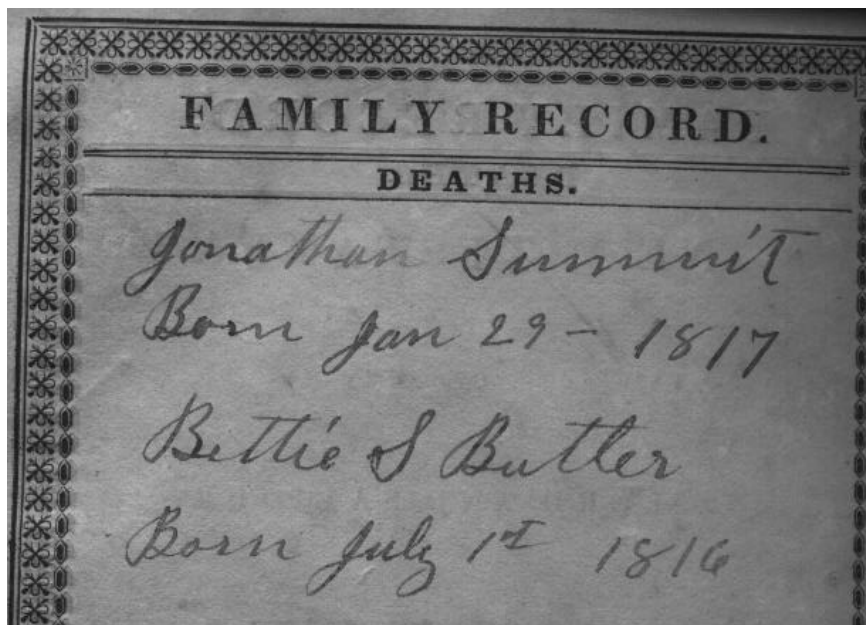 FAMILY RECORD.
DEATHS.
Jonathan Summit
Born Jan 29 - 1817
Bettie S Butler
Born July 1st 1816